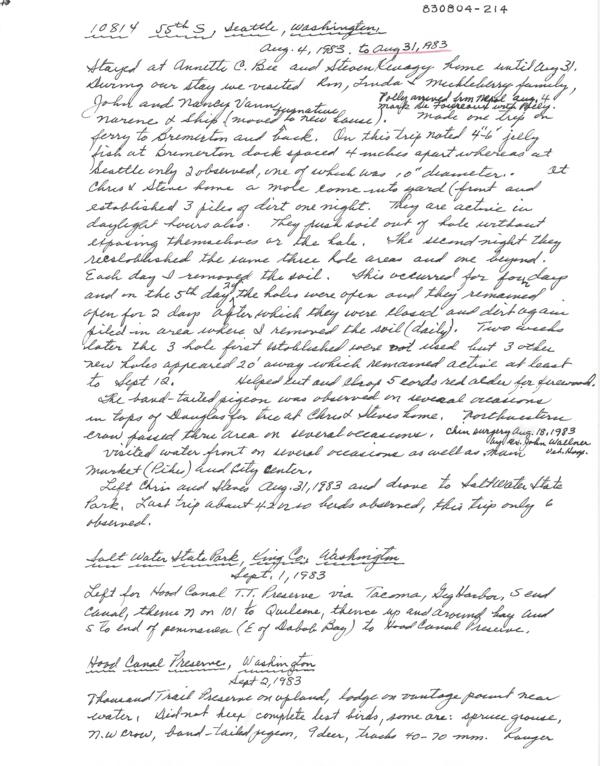 830804-214
10814 55th S, Seattle, Washington,
Aug. 4, 1983, to Aug 31, 1983
Stayed at Annette C. Bee and Steven home until Aug 31.
During our stay we visited Ron, Linda & Muckleberry family,
Polly arrived from Nepal Aug. 4
John and Nancy Vann, signature with Polly.
Narene & Skip (moved to new house). Made one trip on
ferry to Bremerton and back. On this trip noted 4"-6" jelly
fish at Bremerton dock spaced 4 inches apart whereas at
Seattle only 2 observed, one of which was 10" diameter. At
Chris & Steve home a mole come into yard (front and
established 3 piles of dirt one night. They are active in
daylight hours also. They push soil out of hole without
exposing themselves or the hole. The second night they
reestablished the same three hole areas and one beyond.
Each day I removed the soil. This occurred for four days
and on the 5th day the holes were open and they remained
open for 2 days after which they were closed and dirt again
piled in area where I removed the soil (daily). Two weeks
later the 3 hole first established were not used but 3 other
new holes appeared 20' away which remained active at least
to Sept 12. Helped cut and chop 5 cords red alder for firewood.
The band-tailed pigeon was observed on several occasions
in tops of Douglas fir tree at Chris & Steves home. Northwestern
crow passed thru area on several occasions. Chin surgery Aug. 18, 1983
by Dr. John Wallner
Visited water front on several occasions as well as main Vet. Hosp.
market (Pikes) and City Center.
Left Chris and Steves Aug. 31, 1983 and drove to Saltwater State
Park. Last trip about 42 or so birds observed, this trip only 6
observed.
Salt Water State Park, King Co., Washington
Sept. 1, 1983
Left for Hood Canal T.T. Preserve via Tacoma, Gig Harbor, S end
Canal, thence N on 101 to Quilcene, thence up and around bay and
S to end of peninsula (E of Dabob Bay) to Hood Canal Preserve.
Hood Canal Preserve, Washington
Sept 2, 1983
Thousand Trail Preserve on upland, lodge on vantage point near
water. Did not keep complete list birds, some are: spruce grouse,
N.W crow, band-tailed pigeon, 9 deer, tracks 40-70 mm. Ranger